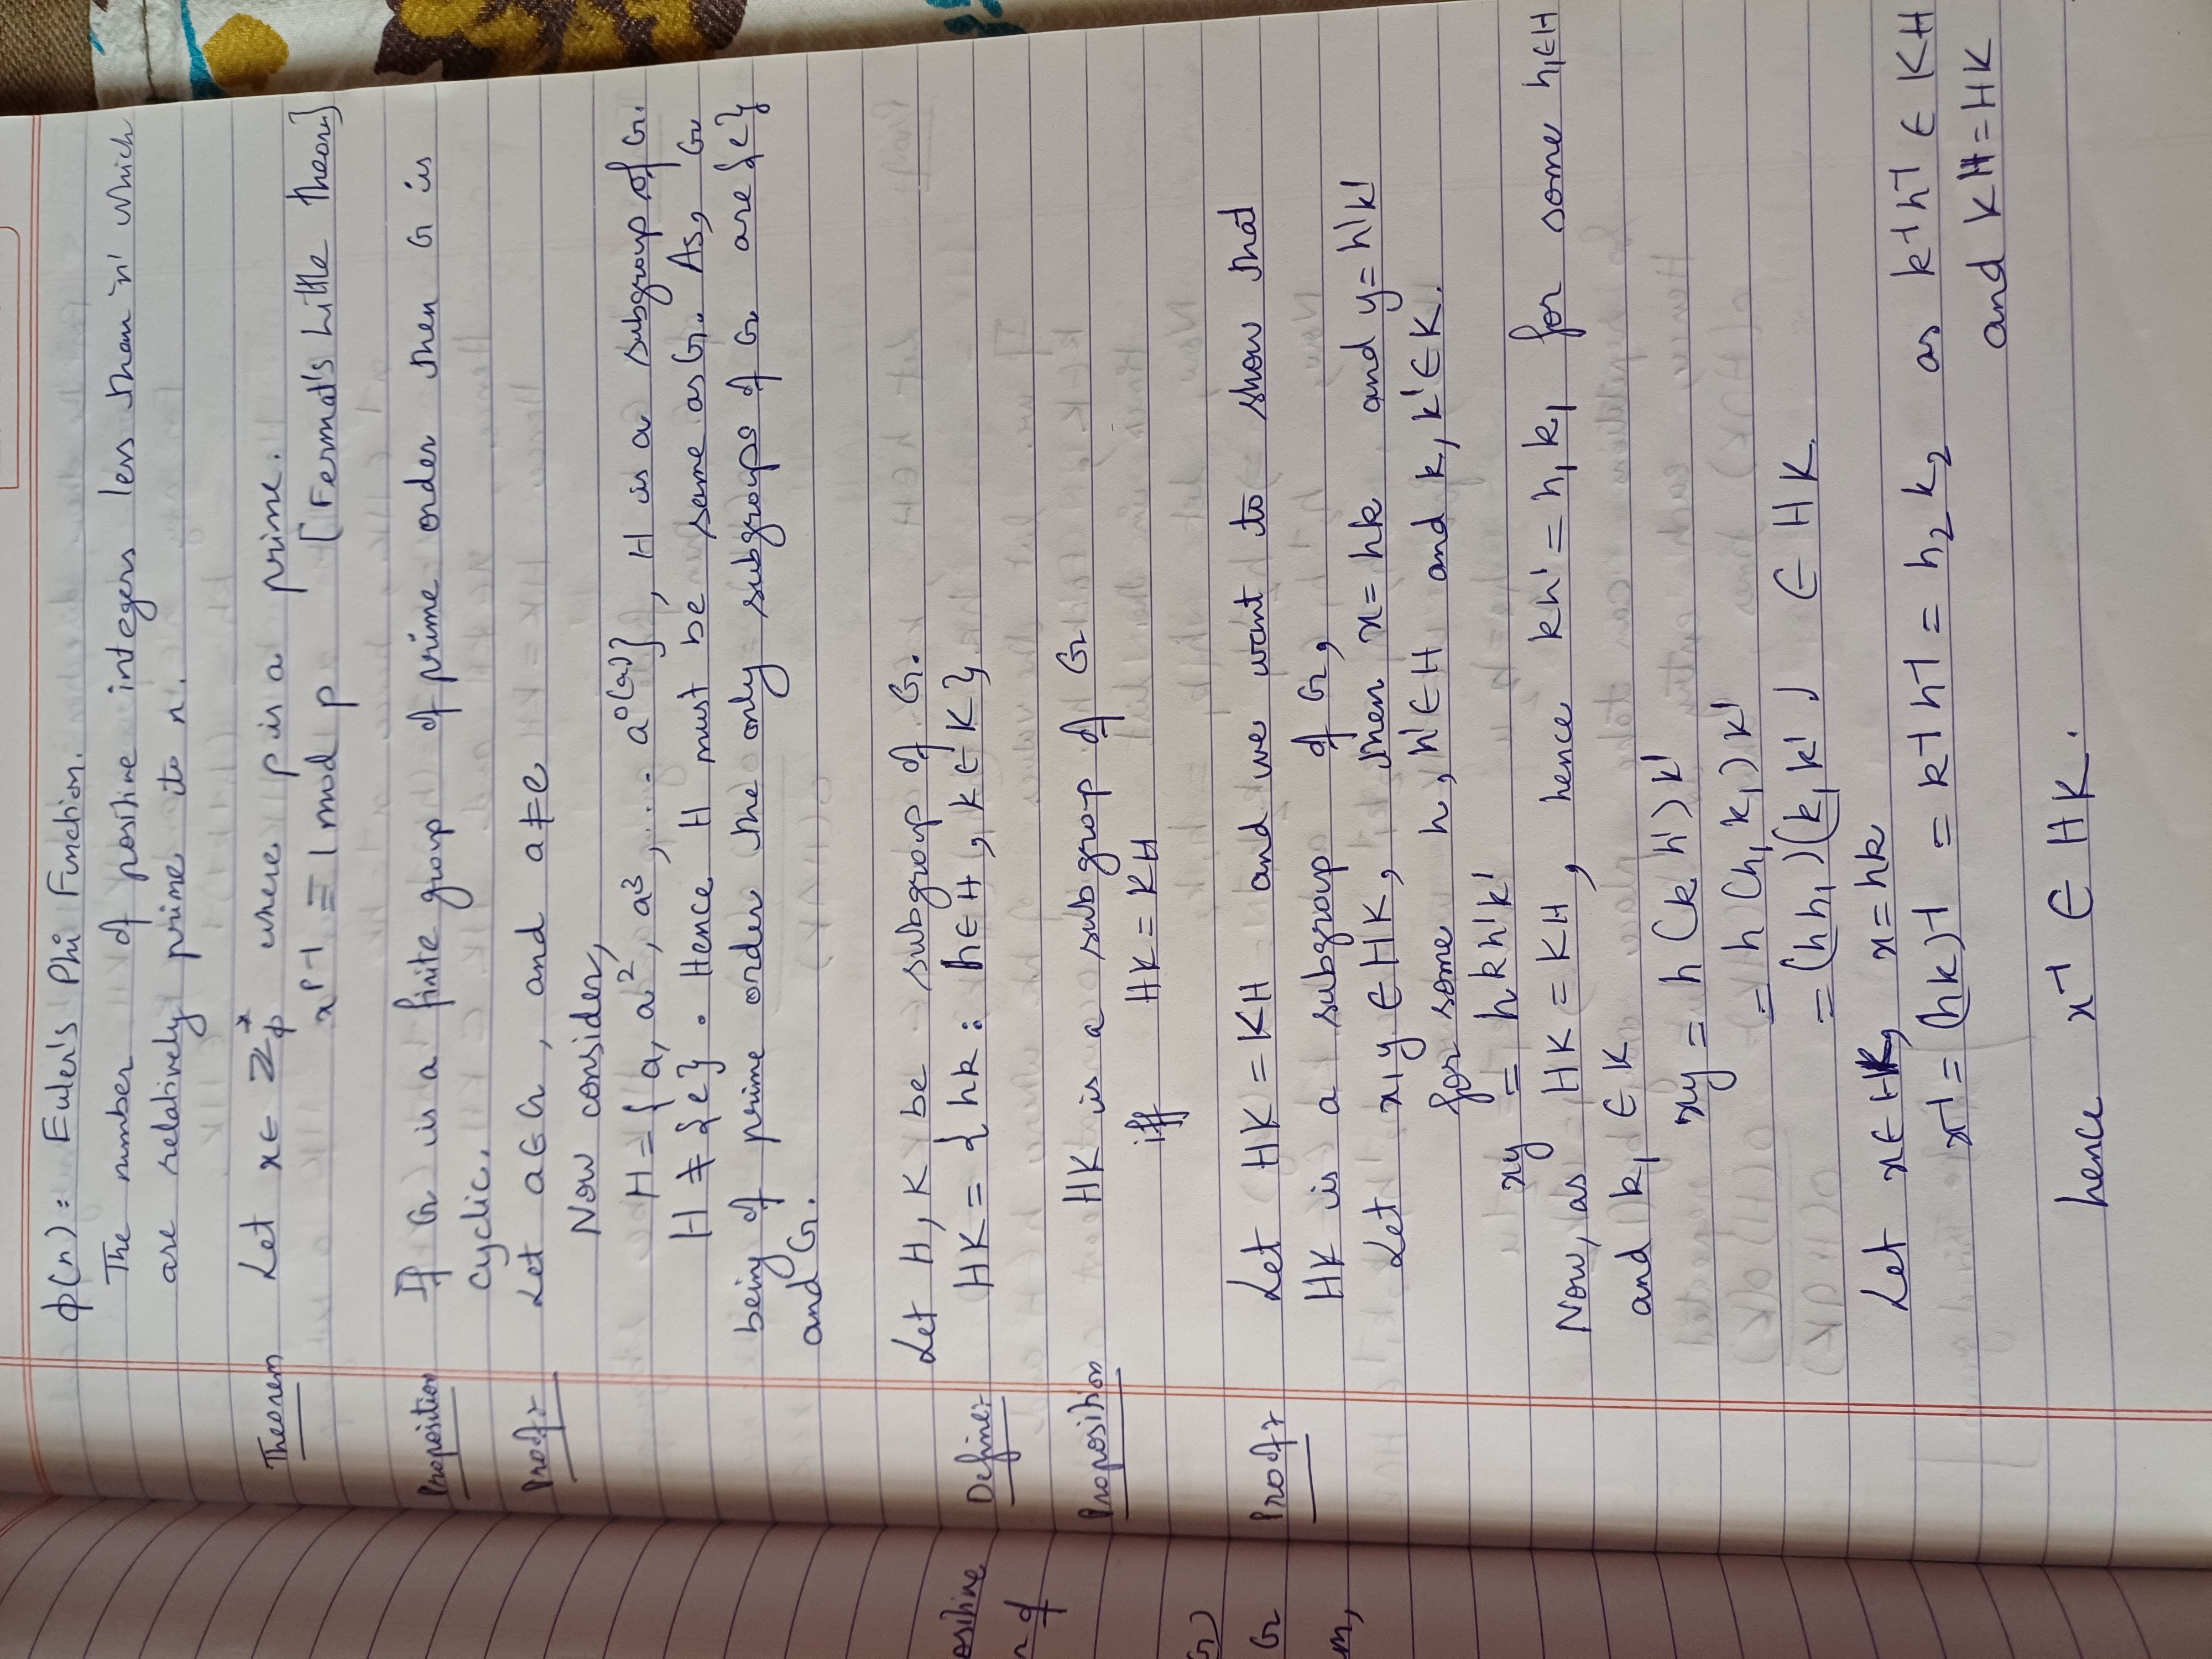 ϕ(n): Euler's Phi Function.
The number of positive integers less than 'n' which
are relatively prime to n.
Theorem Let x ∈ ℤ*ₚ where p is a prime.
xᵖ⁻¹ ≡ 1 mod p [Fermat's Little theorem]
Proposition If G is a finite group of prime order then G is
cyclic.
Proof:- Let a∈G, and a≠e
Now consider,
H = {a, a², a³, ... aᵒ⁽ᵃ⁾}, H is a subgroup of G.
H ≠ {e}. Hence H must be same as G. As, G
being of prime order the only subgroups of G are {e}
and G.
Let H, K be subgroup of G.
Define:- HK = {hk : h∈H, k∈K}
Proposition HK is a subgroup of G
iff HK = KH
Proof:- Let HK = KH and we want to show that
HK is a subgroup of G,
Let x,y ∈ HK, then x = hk and y = h'k'
for some h, h'∈H and k, k'∈K.
xy = hkh'k'
Now, as HK = KH, hence kh' = h₁k₁ for some h₁∈H
and k₁ ∈ K
xy = h(kh')k'
= h(h₁k₁)k'
= (hh₁)(k₁k') ∈ HK
Let x∈HK, x=hk
x⁻¹ = (hk)⁻¹ = k⁻¹h⁻¹ = h₂k₂ as k⁻¹h⁻¹ ∈ KH
and KH = HK
hence x⁻¹ ∈ HK.
ositive
n of
G)
G
m,